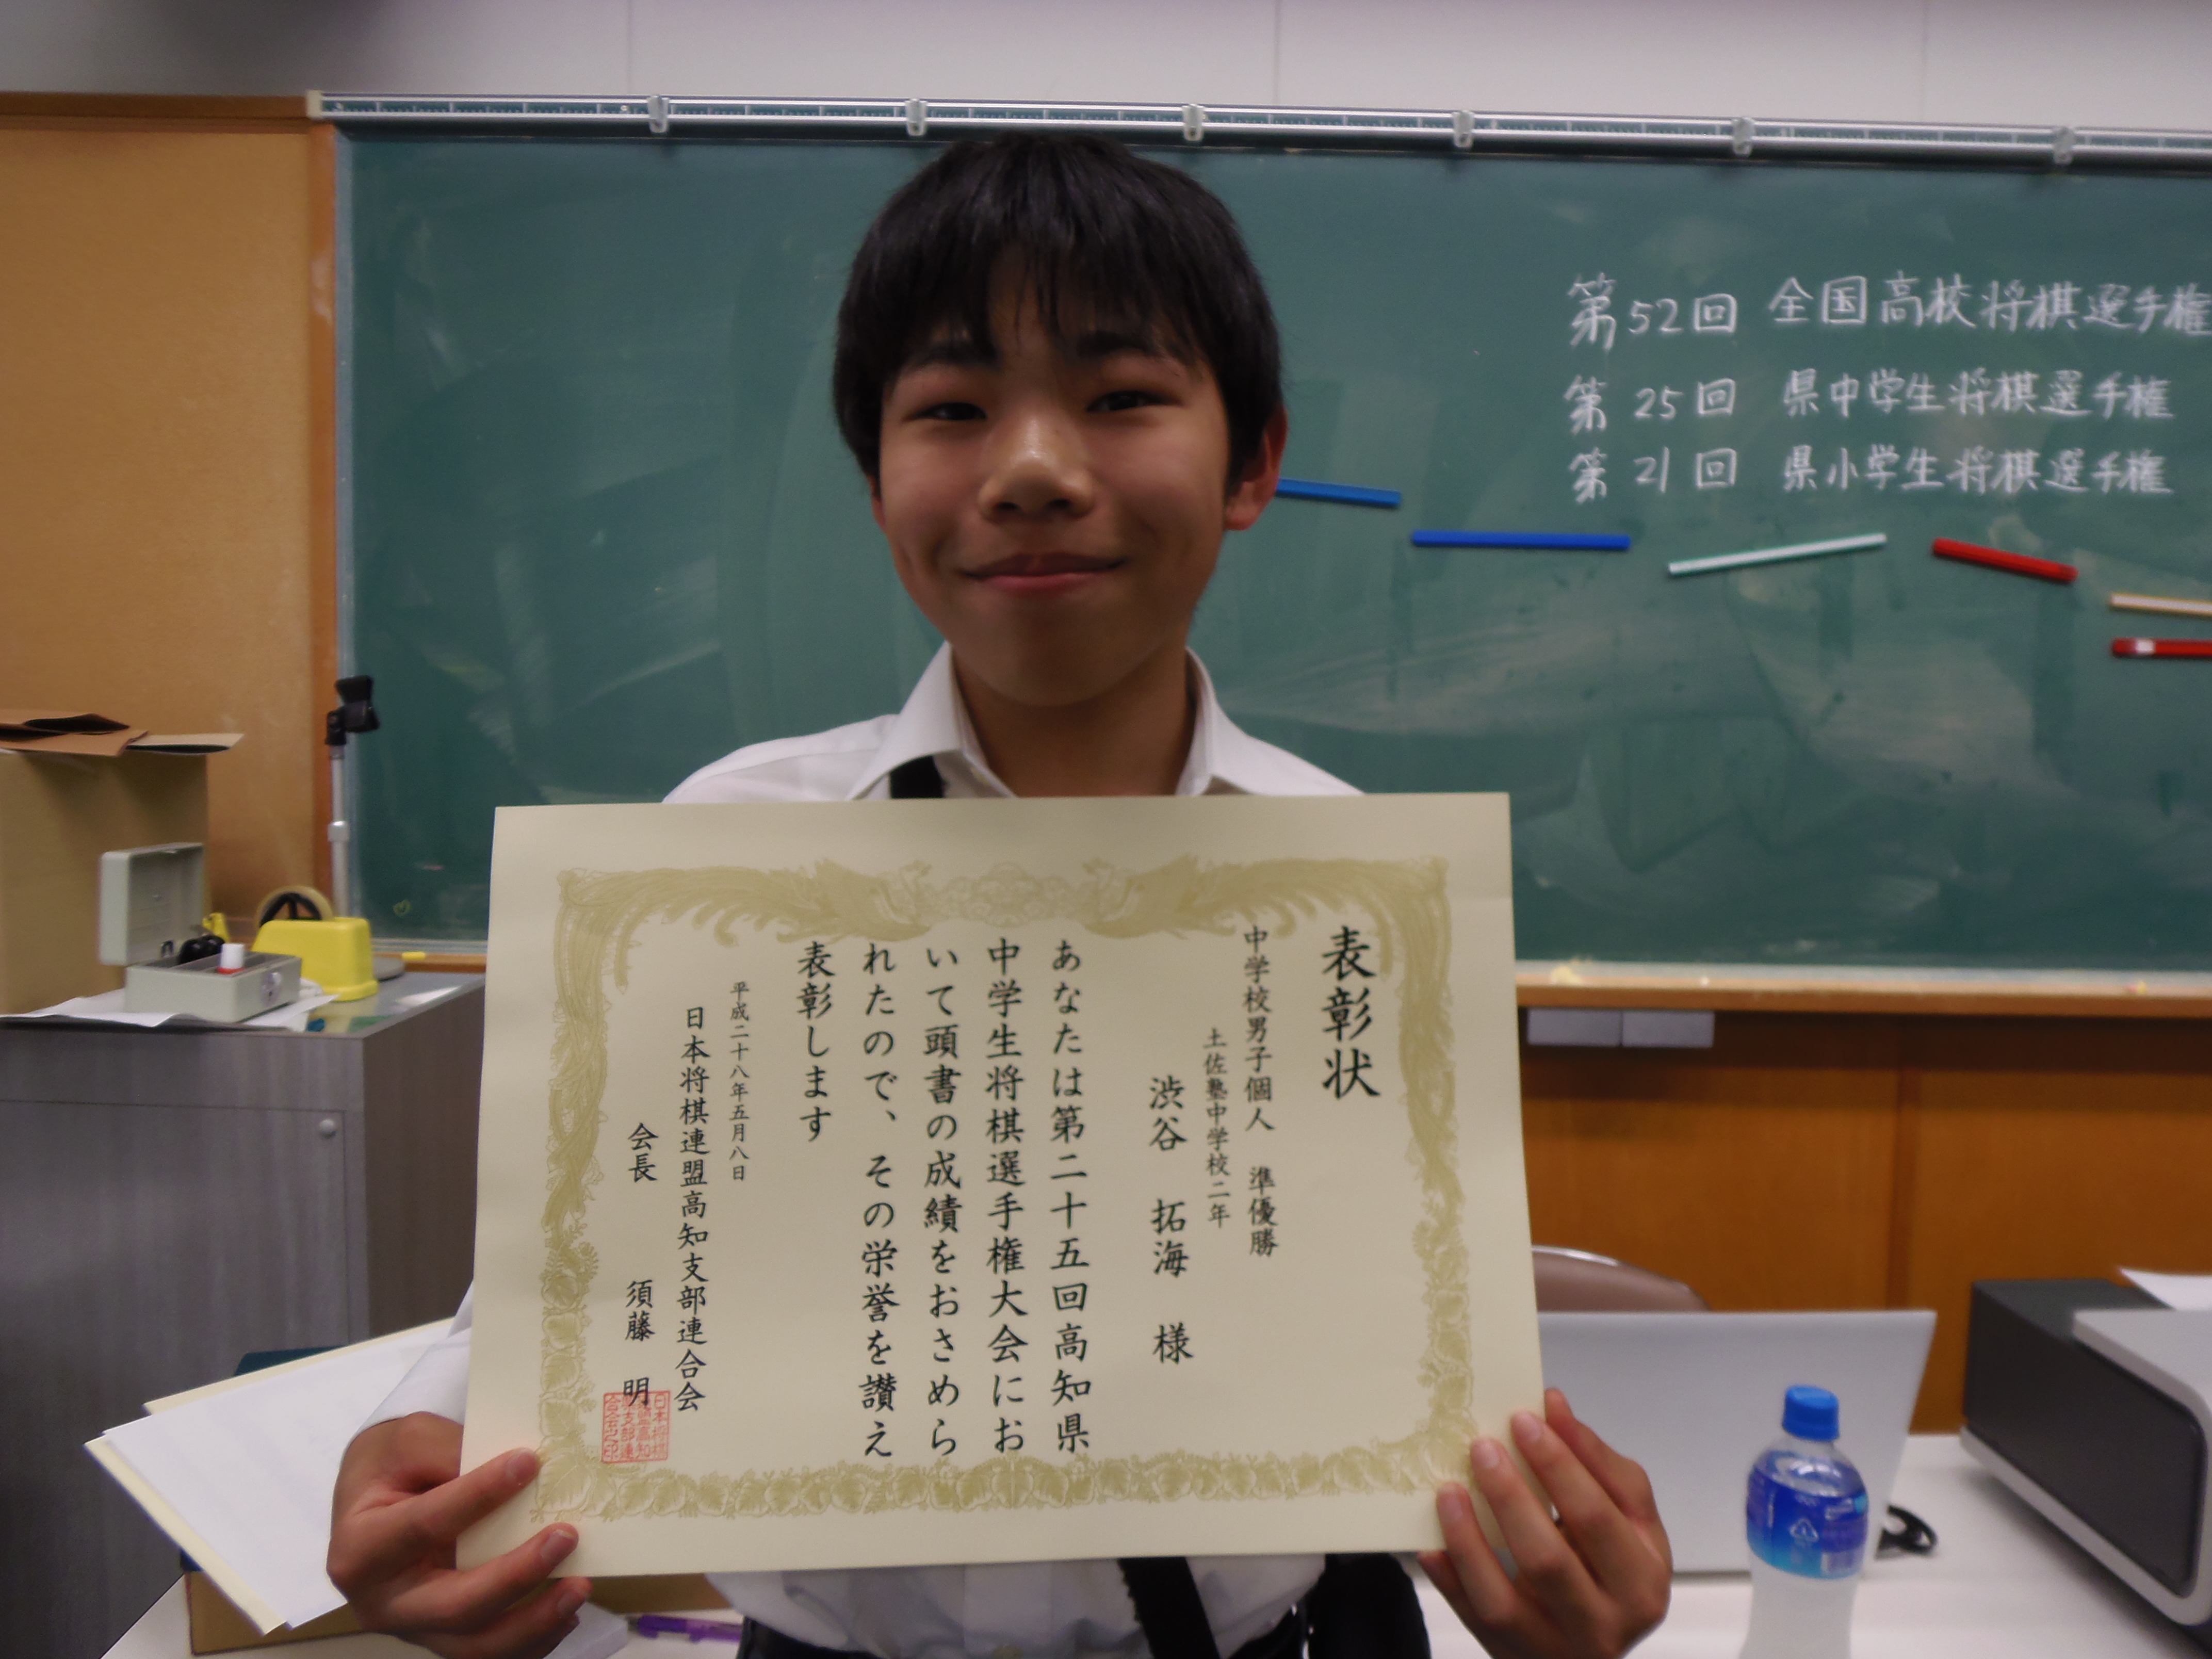 第52回 全国高校将棋選手権
第25回 県中学生将棋選手権
第21回 県小学生将棋選手権
表彰状
中学校男子個人 準優勝
土佐塾中学校二年
渋谷 拓海 様
あなたは第二十五回高知県
中学生将棋選手権大会にお
いて頭書の成績をおさめら
れたので、その栄誉を讃え
表彰します
平成二十八年五月八日
日本将棋連盟高知支部連合会
会長 須藤 明